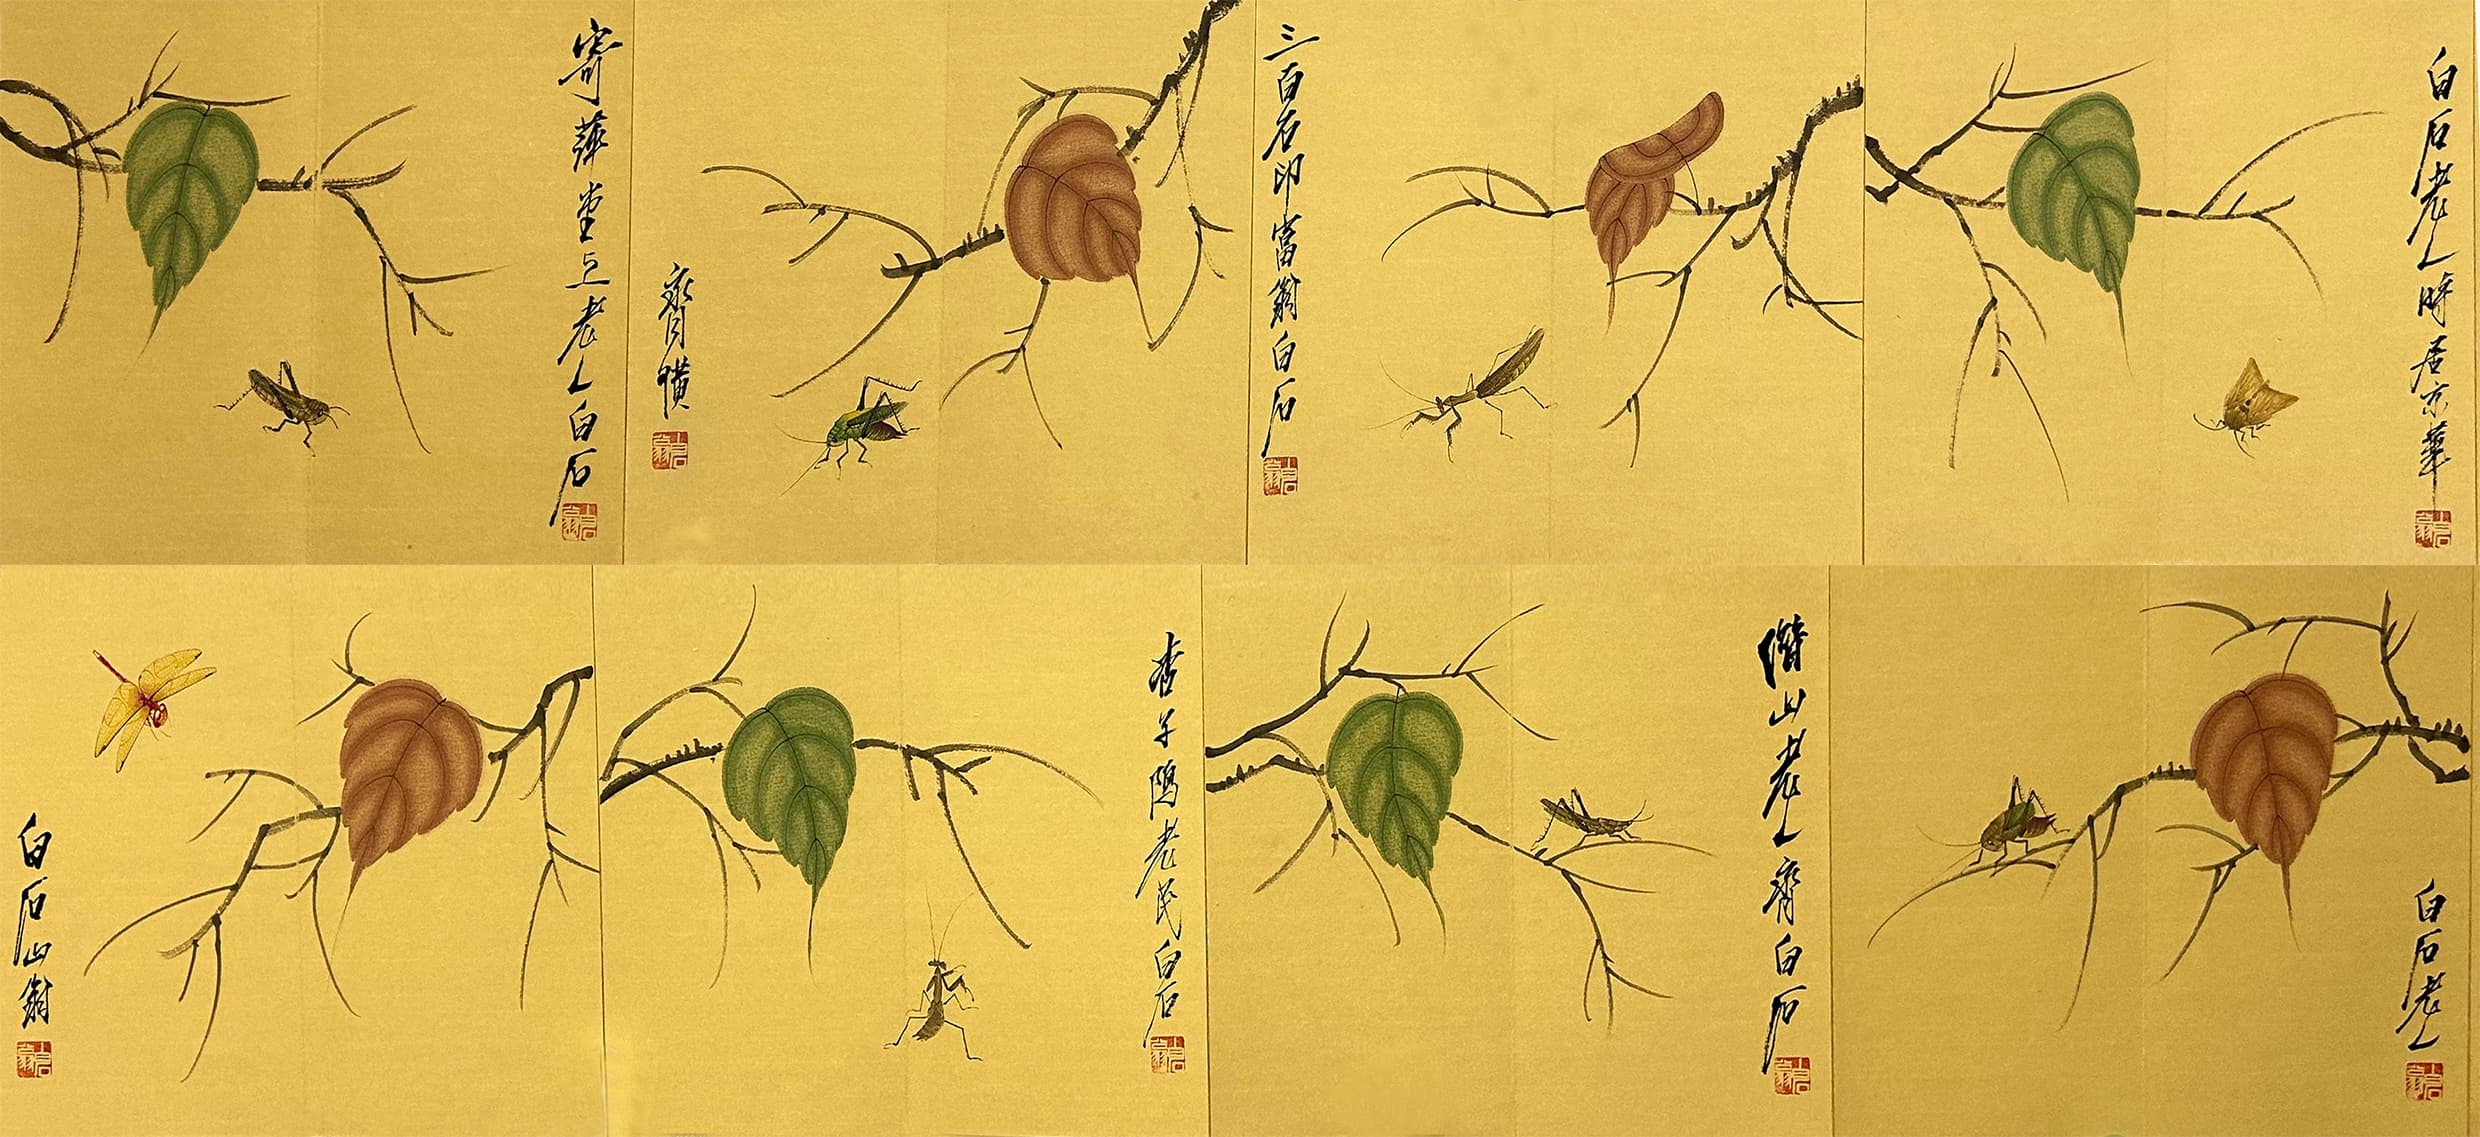 寄萍堂上老人白石
齊璜
三百石印富翁白石
白石老人時居京華
白石山翁
杏子隖老民白石
借山老人齊白石
白石老人